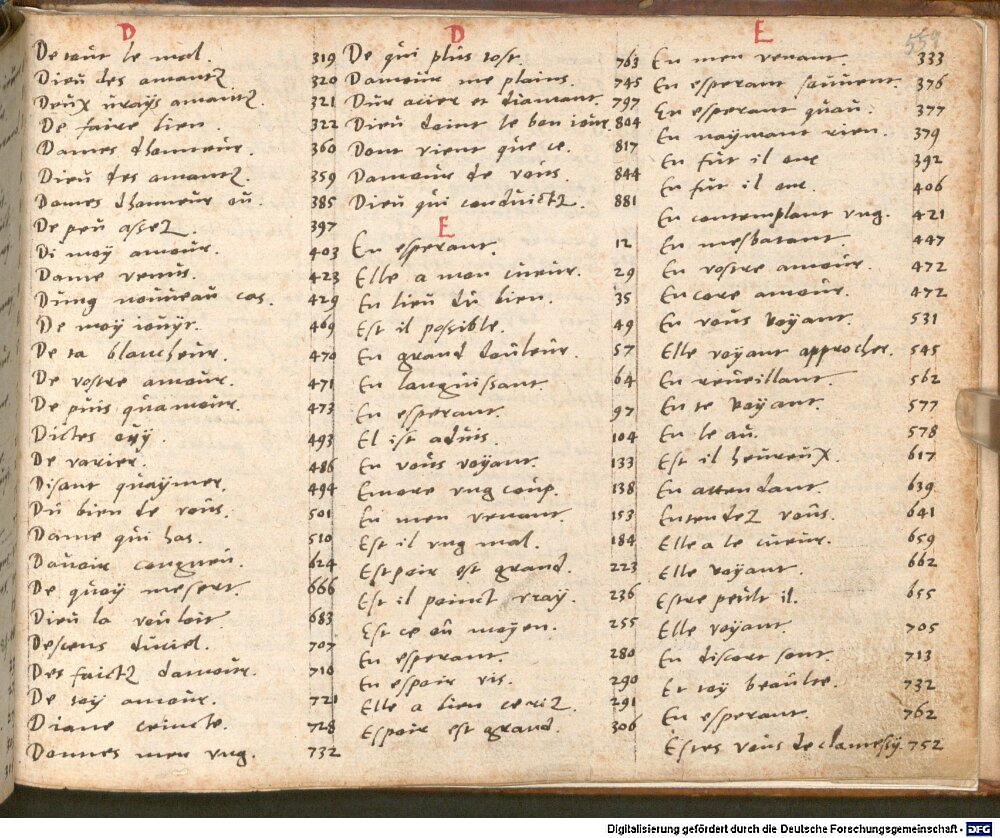 D
De tout le mal. 319
Dieu des amantz 320
Deux vrays amantz. 321
De faire bien. 322
Dames dhonneur. 360
Dieu des amantz. 359
Dames dhonneur ou. 385
De peu assez. 397
Di moy amour. 403
Dame venus. 423
Dung nouveau cas. 429
De moy iouyr. 469
De ta blancheur. 470
De vostre amour. 471
De puis quamour. 473
Dictes ouy. 493
De varier. 486
Disant quaymer. 494
Du bien de vous. 501
Dame qui has. 510
Davoir congneu. 624
De quoy me sert. 666
Dieu la vouloit. 683
Descens du ciel. 707
Des faictz damour. 710
De toy amour. 721
Diane ceincte. 728
Donnes men ung. 732
D
De qui plus tost. 763
Damour me plains. 745
Dur acier et diamant. 797
Dieu doint le bon iour. 804
Dont vient que ce. 817
Damour de vous. 844
Dieu qui conduictz. 881
E
En esperant. 12
Elle a mon cueur. 29
En lieu du bien. 35
Est il possible. 49
En grand douleur. 57
En languissant 64
En esperant. 97
El ist aduis. 104
En vous voyant. 133
Encore vng coup. 138
En men venant. 153
Est il vng mal. 184
Espoir est grand. 223
Est il poinct vray. 236
Est ce au moyen. 255
En esperant. 280
En espoir vis. 290
Elle a bien 291
Espoir est grand. 306
E
559
En men venant. 333
En esperant souuent. 376
En esperant quau. 377
En naymant rien. 379
En fut il onc 392
En fut il onc. 406
En contemplant vng. 421
En mesbatant. 447
En vostre amour. 472
Encore amour. 472
En vous voyant. 531
Elle voyant approcher. 545
En reueillant. 562
En te voyant. 577
En le au. 578
Est il heureux. 617
En attendant. 639
Entendez vous. 641
Elle a le cueur. 659
Elle voyant. 662
Estre peult il. 655
Elle voyant. 705
En discort sont. 713
Et toy beaulte. 732
En esperant. 762
Estes vous de clamessy. 752
Digitalisierung gefördert durch die Deutsche Forschungsgemeinschaft - DFG